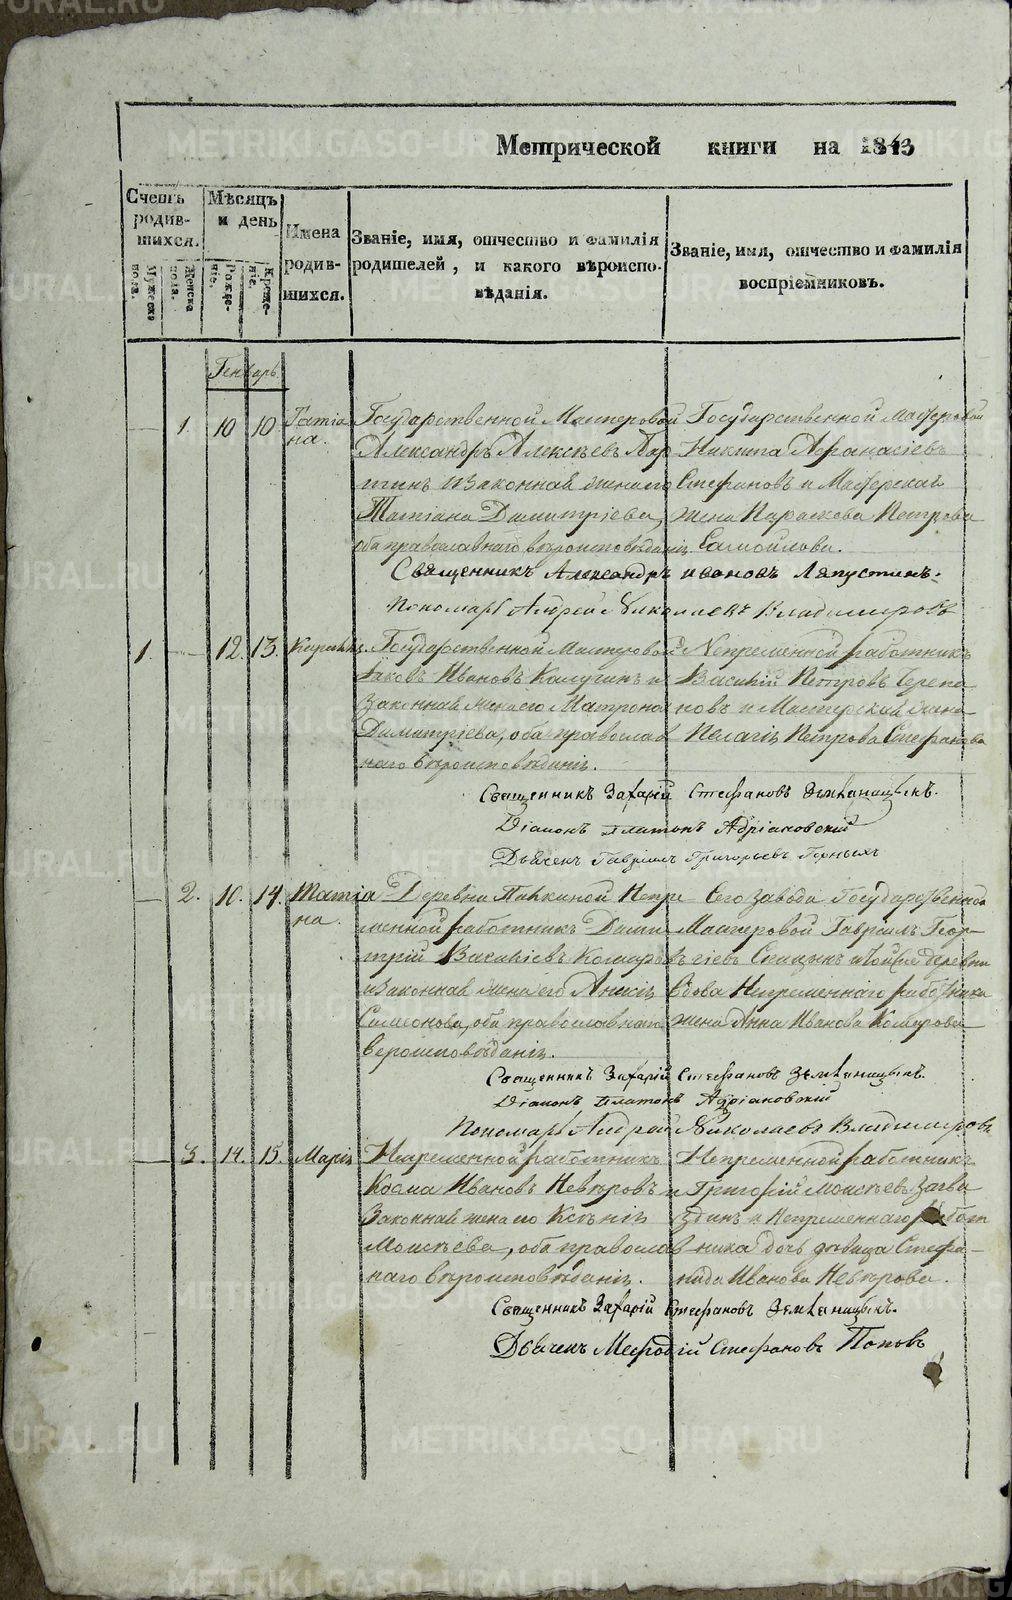 METRIKI.GASO-URAL.RU
Метрической книги на 1843
Счетъ родив-шихся.
Мужеска пола.
Женска пола.
Мѣсяцъ и день
Рожде-ніе.
Креще-ніе.
Имена родив-шихся.
Званіе, имя, отчество и фамилія родителей, и какого вѣроиспо-вѣданія.
Званіе, имя, отчество и фамилія воспріемниковъ.
Генварь
1. 10 10 Татіа
на.
Государственной Мастеровой
Александръ Алексѣевъ Пар
тинъ и законная жена его
Татіана Димитріева,
оба православнаго вѣроисповѣданія
Государственной Мастеровой
Никита Афанасіевъ
Стефановъ и Мастерская
жена Параскова Петрова
Самойлова.
Священникъ Александръ Ивановъ Ляпустинъ.
Пономарь Андрей Николаевъ Владимировъ
1. 12. 13. Кириллъ.
Государственной Мастеровой
Іаковъ Ивановъ Калугинъ и
Законная жена его Матрона
Димитріева, оба православ
наго вѣроисповѣданія.
Непременной работникъ
Василій Петровъ Черепа
новъ и Мастерская жена
Пелагія Петрова Стефанова
Священникъ Захарій Стефановъ Земляницынъ.
Діаконъ Платонъ Адріановскій
Дьячекъ Гавріилъ Григорьевъ Горныхъ
2. 10. 14. Татіа
на.
Деревни Непре
менной работникъ Дими
трій Василіевъ Комаровъ
и законная жена его Анисія
Симеонова, оба православнаго
вероисповѣданія.
Сего завода Государственной
Мастеровой Гавріилъ Геор-
гіевъ и той же деревни
вдова Непременнаго работника
жена Анна Иванова Комарова
Священникъ Захарій Стефановъ Земляницынъ.
Діаконъ Платонъ Адріановскій
Пономарь Андрей Николаевъ Владимировъ
3. 14. 15. Марія
Непременной работникъ
Косма Ивановъ Невѣровъ и
Законная жена его Ксенія
Моисѣева, оба православ
наго вѣроисповѣданія.
Непременной работникъ
Григорій Моисѣевъ Загва
здинъ и Непременнаго работ
ника дочь дѣвица Стефа-
нида Иванова Невѣрова.
Священникъ Захарій Стефановъ Земляницынъ.
Дьячекъ Мефодій Стефановъ Поповъ